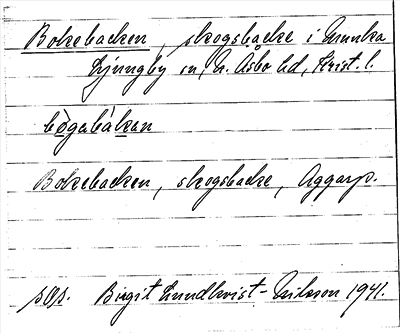 Bokebacken, skogsbacke i Munka
Ljungby sn, N. Åsbo hd, Krist. l.
bògabàkan
Bokebacken, skogsbacke, Aggarp.
Birgit Lundkvist-Eriksson 1941.